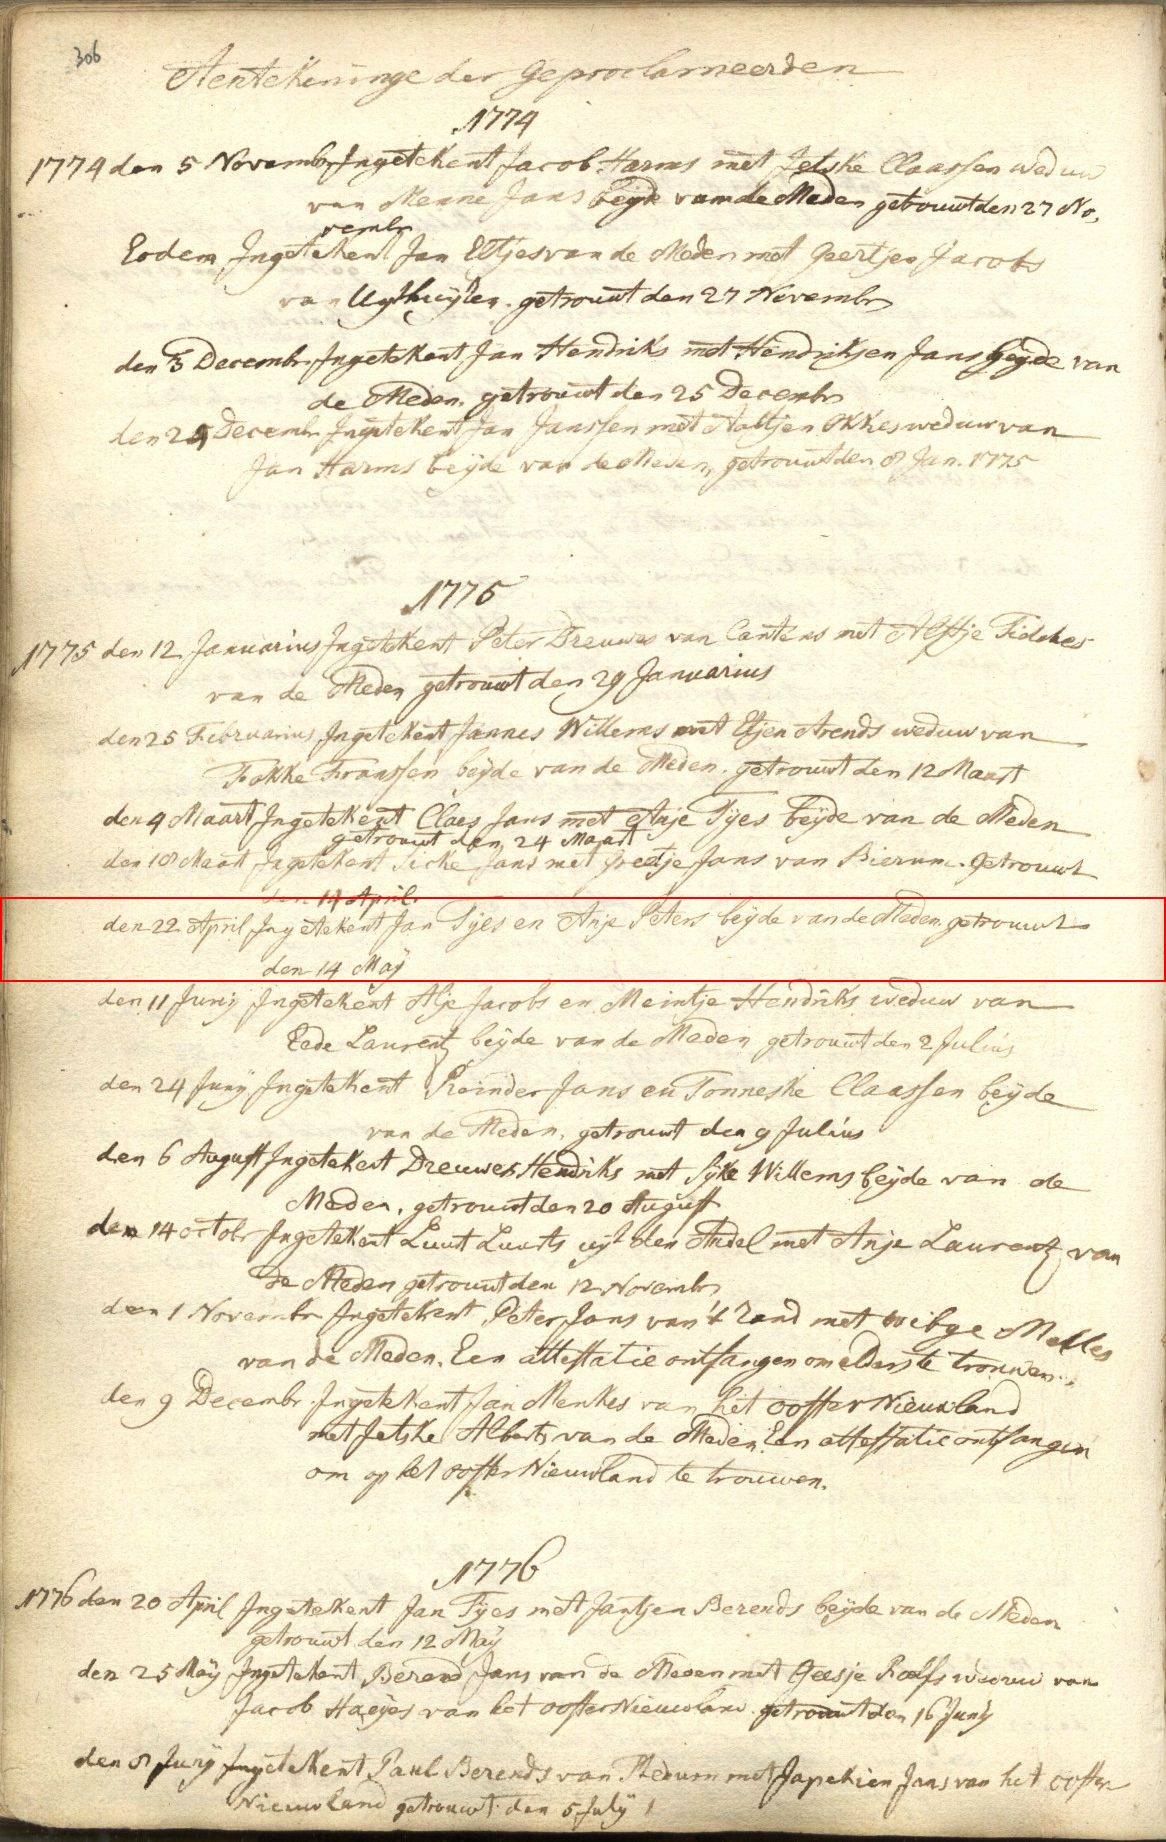 306
Aentekeninge der Geproclameerden
1774
1774 den 5 Novembr Ingetekent Jacob Harms met Jetske Claassen weduw
van Menne Jans beyde van de Meden getrouwt den 27 No,
vembr
Eodem Ingetekent Jan Eltjes van de Meden met Geertjen Jacobs
van Uythuyzen. getrouwt den 27 Novembr
den 3 Decembr Ingetekent Jan Hendriks met Hendrikjen Jans beyde van
de Meden. getrouwt den 25 Decembr
den 24 Decembr Ingetekent Jan Janssen met Aaltjen Okkes weduw van
Jan Harms beyde van de Meden, getrouwt den 8 Jan. 1775
1775
1775 den 12 Januarius Ingetekent Peter Dreuwes van Cantens met Alstje Fidekes
van de Meden getrouwt den 29 Januarius
den 25 Februarius Ingetekent Jannes Willems met Etjen Arends weduw van
Fokke Franssen beyde van de Meden. getrouwt den 12 Maart
den 4 Maart Ingetekent Claes Jans met Anje Tyes beyde van de Meden
getrouwt den 24 Maart
den 18 Maart Ingetekent Sicke Jans met Greetje Jans van Bierum. Getrouwt
den 14 April.
den 22 April Ingetekent Jan Tyes en Anje Peters beyde van de Meden. getrouwt
den 14 May
den 11 Juny Ingetekent Alje Jacobs en Meintje Hendriks weduw van
Eede Laurentz beyde van de Meden getrouwt den 2 Julius
den 24 Juny Ingetekent Reinder Jans en Tonneske Claassen beyde
van de Meden. getrouwt den 9 Julius
den 6 August Ingetekent Dreuwes Hendriks met Syke Willems beyde van de
Meden. getrouwt den 20 August
den 14 octobr Ingetekent Luut Luurts uyt den Andel met Anje Laurentz van
de Meden getrouwt den 12 Novembr
den 1 Novembr Ingetekent Peter Jans van 't Zand met wibge Melles
van de Meden. Een attestatie ontfangen om elders te trouwen.
den 9 Decembr Ingetekent Jan Menkes van het ooster Nieuwland
met Jetske Alberts van de Meden. Een attestatie ontfangen
om op het ooster Nieuwland te trouwen.
1776
1776 den 20 April Ingetekent Jan Tyes met Jantjen Berends beyde van de Meden
getrouwt den 12 May
den 25 May Ingetekent Berend Jans van de Meden met Geesje Roelfs weduw van
Jacob Hayes van het ooster Nieuwland getrouwt den 16 Juny
den 8 Juny Ingetekent Paul Berends van Stedum met Japekien Jans van het ooster
Nieuwland getrouwt den 5 July